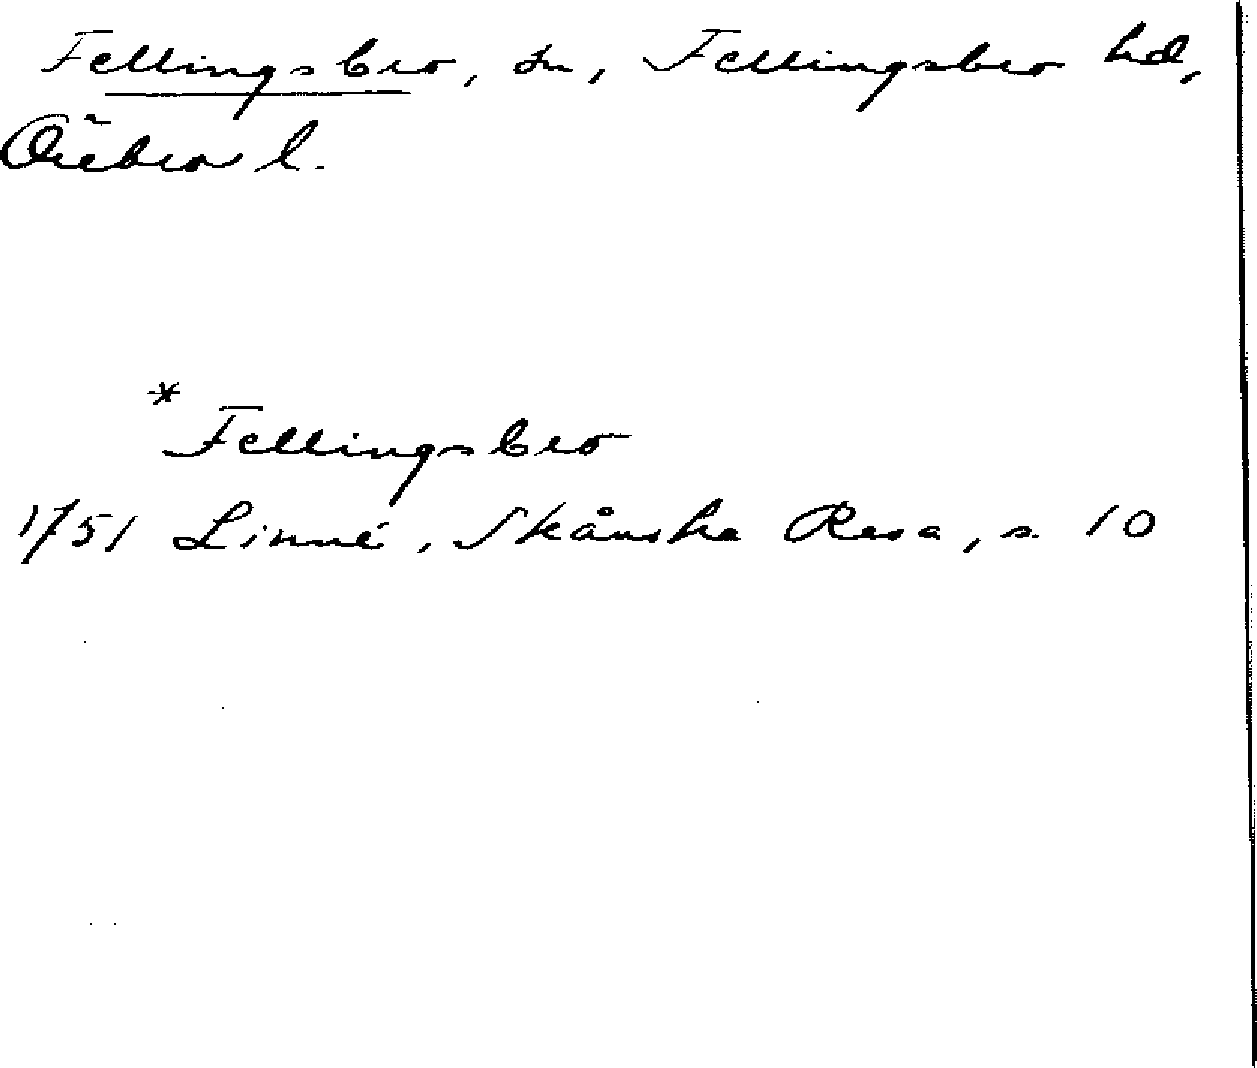 Fellingsbro, sn, Fellingsbro hd,
Örebro l.
*Fellingsbro
1751 Linné, Skånska Resa, s. 10